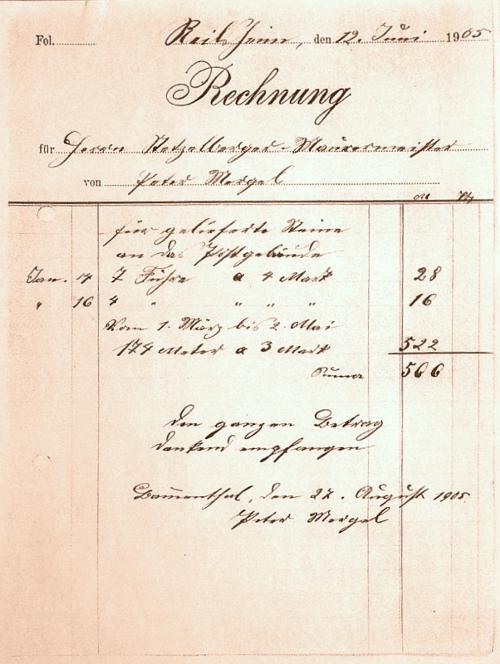 Fol. Reilsheim, den 12. Juni 1905
Rechnung
für Herrn Stetzelberger-Maurermeister
von Peter Mergel
M Pfg
für gelieferte Steine
an das Postgebäude
Jan. 7 7 Fuhre a 4 Mark 28
" 16 4 " " " " 16
Vom 1. März bis 2. Mai
174 Meter a 3 Mark 522
Suma 566
den ganzen Betrag
dankend empfangen
Bammenthal, den 27. August 1905
Peter Mergel